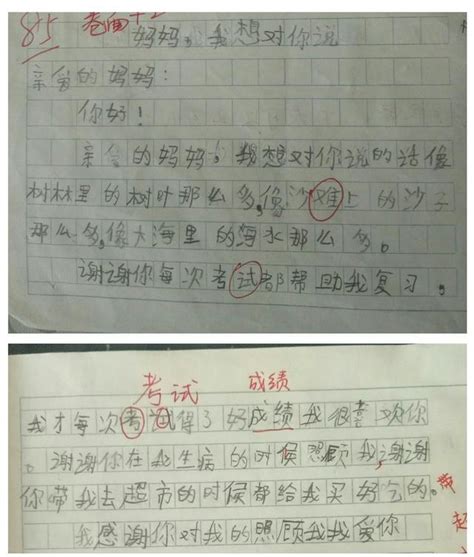 815 卷面+2
妈妈,我想对你说
亲爸的妈妈:
你好!
亲爸的妈妈,我想对你说的话像
树林里的树叶那么多,像沙难上的沙子
那么多,像大海里的海水那么多。
谢谢你每次考试都帮助我复习。
考试 成绩
我才每次考试得了好成绩我很喜欢你
。谢谢你在我生病的时候照顾我,谢谢
你带我去超市的时候都给我买好吃的。带
我感谢你对我的照顾我我爱你 超